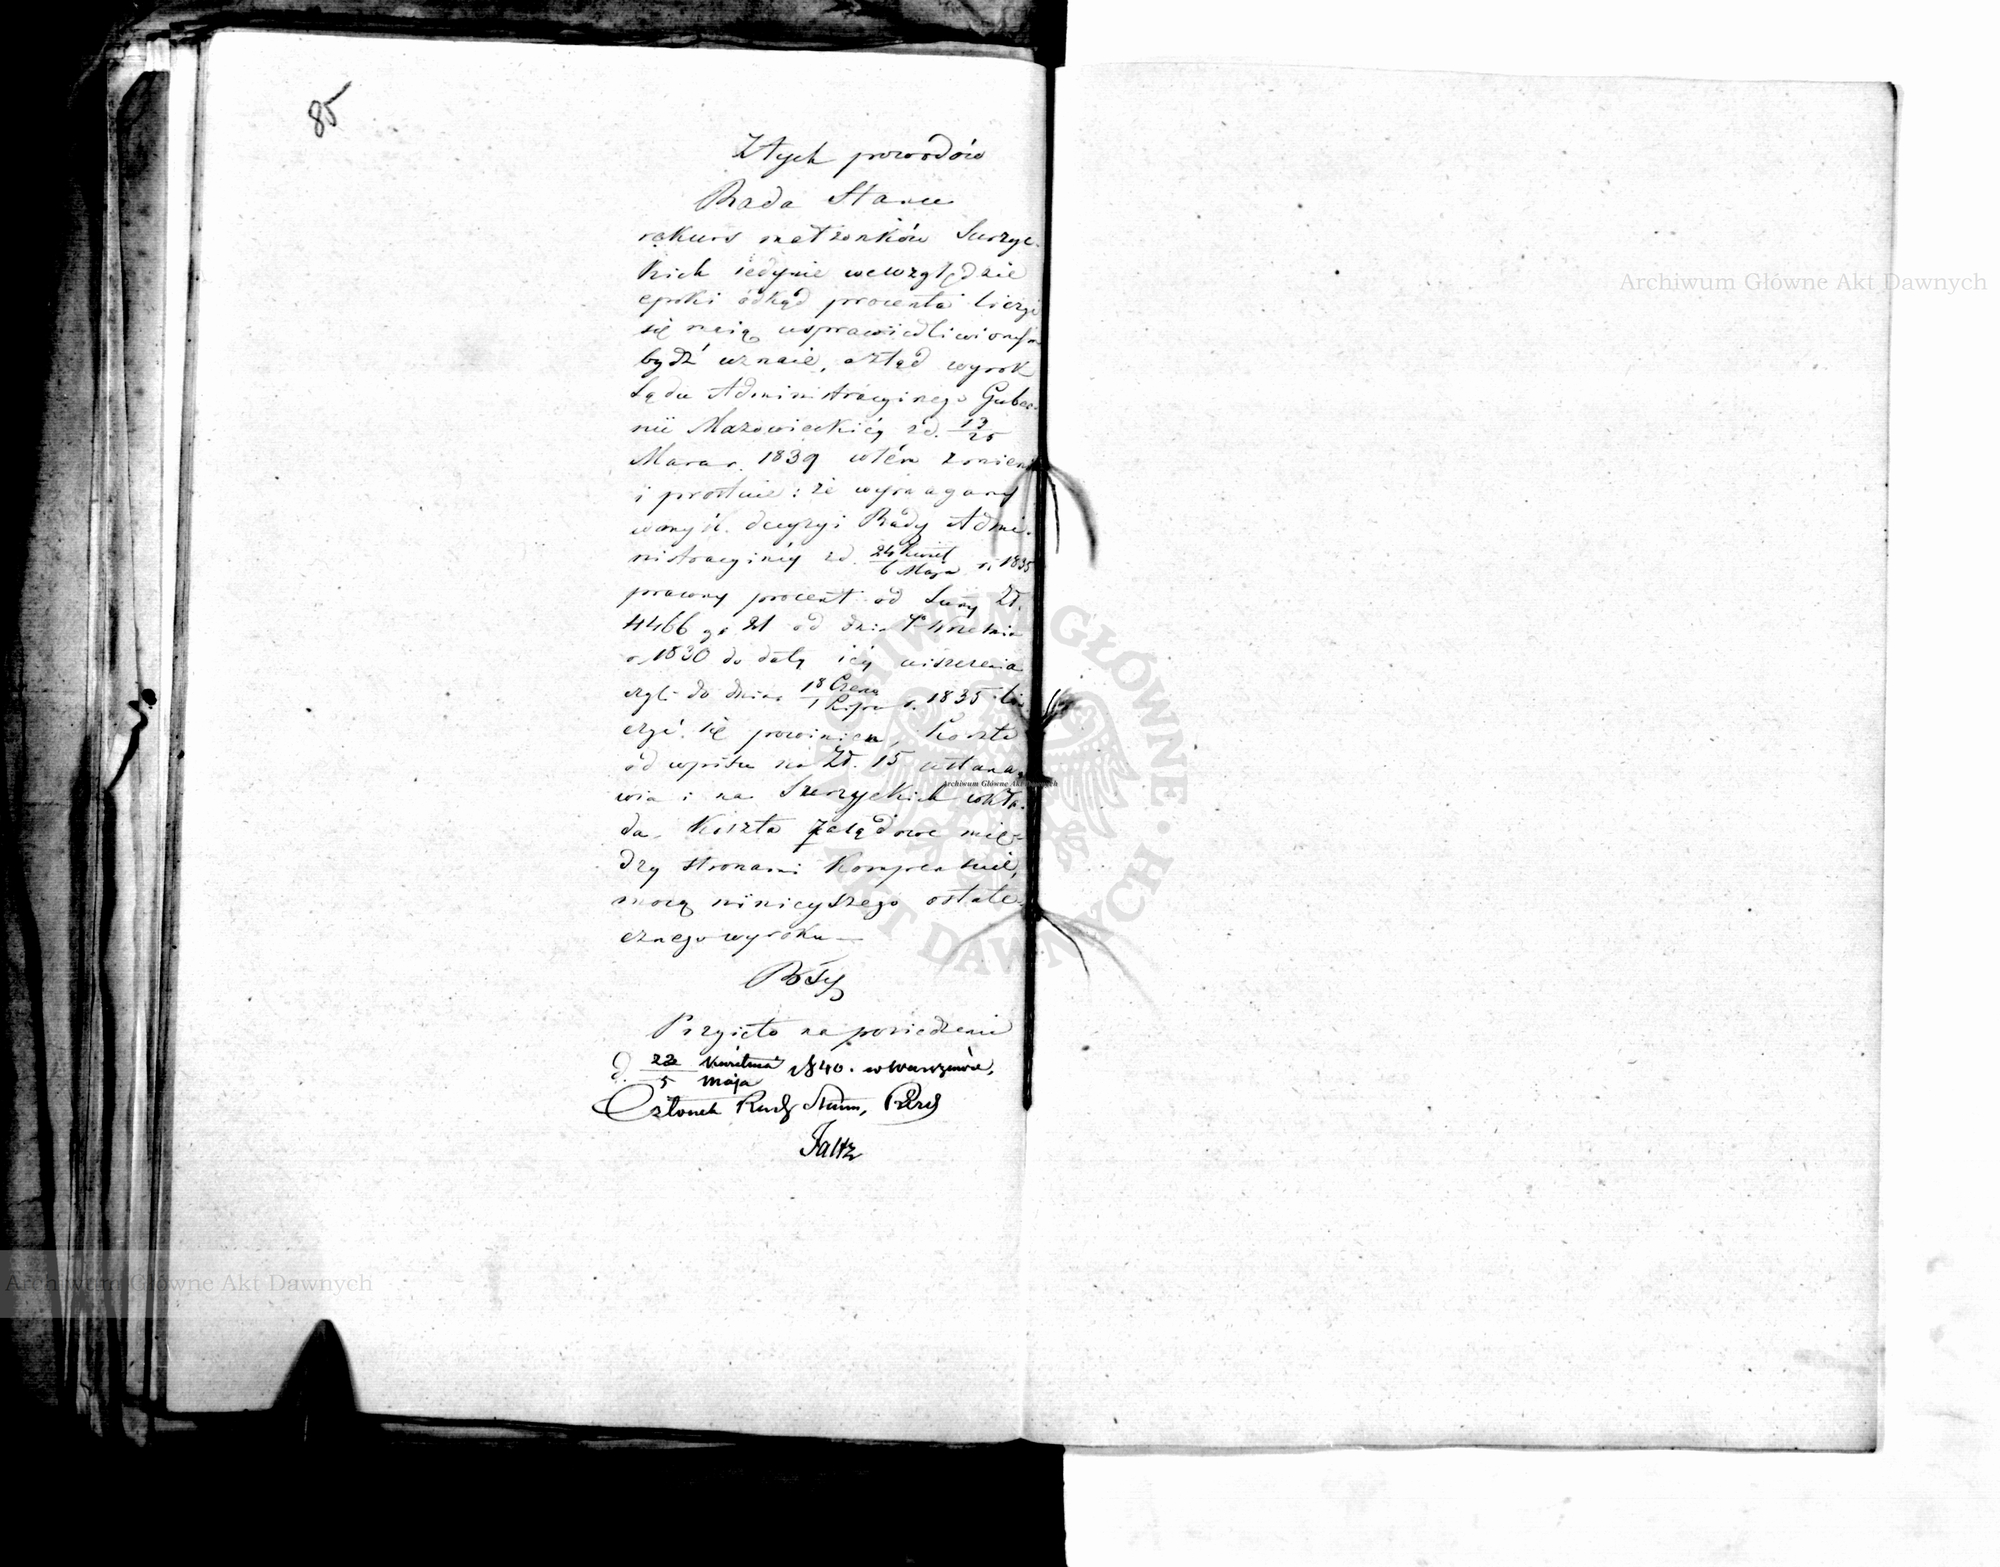 85
Z tych powodów
Rada Stanu
rekurs małżonków Surzyc-
kich iedynie wewzględzie
epoki odkąd procenta liczyć
się maią usprawiedliwionym
bydź uznaie, a ztąd wyrok
Sądu Administracyinego Guber-
nii Mazowieckiéy z d. 13/25
Marca r. 1839 w tém zmienia
i prostuie: że wymagany
decyzyi Rady Admi-
nistracyinéy z d. 24 Kwiet/6 Maja r. 1835
prawny procent od Sumy Zł.
4466 gr 21 od dnia Kwietnia
r. 1830 do daty iéy uiszczenia
czyli do dnia 18 Czerw/1 Lipca r. 1835 li-
czyć się powinien, koszta
od wpisu na Zł. 15 ustana-
wia i na Surzyckich wkła-
da. Koszta zasądowe mię-
dzy stronami kompensuie,
mocą ninieyszego ostate-
cznego wyroku —
Przyięto na posiedzeniu
d. 23 Kwietnia/5 Maja 1840. w Warszawie.
Członek Rady Stanu,
Archiwum Główne Akt Dawnych
Archiwum Główne Akt Dawnych
Archiwum Główne Akt Dawnych
ARCHIWUM GŁÓWNE AKT DAWNYCH